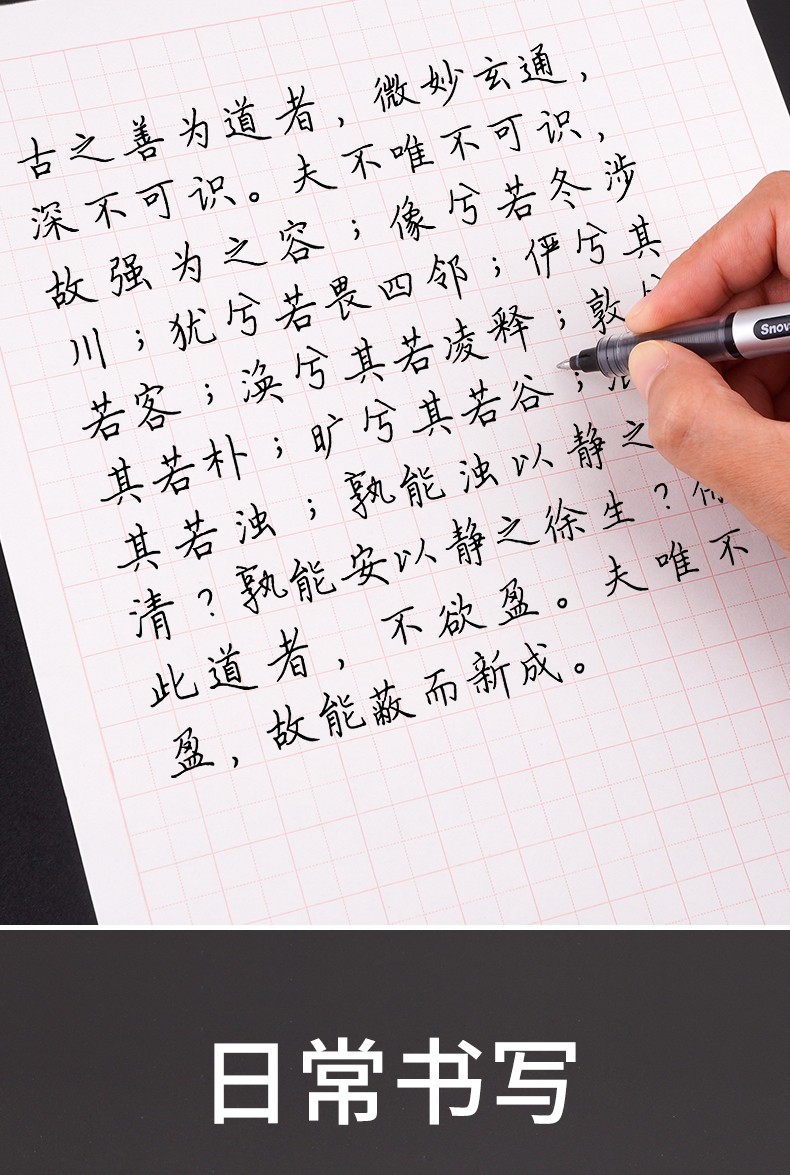 古之善为道者，微妙玄通，
深不可识。夫不唯不可识，
故强为之容；像兮若冬涉
川；犹兮若畏四邻；俨兮其
若客；涣兮其若凌释；敦兮
其若朴；旷兮其若谷；
其若浊；孰能浊以静之
清？孰能安以静之徐生？保
此道者，不欲盈。夫唯不
盈，故能蔽而新成。
Snow
日常书写